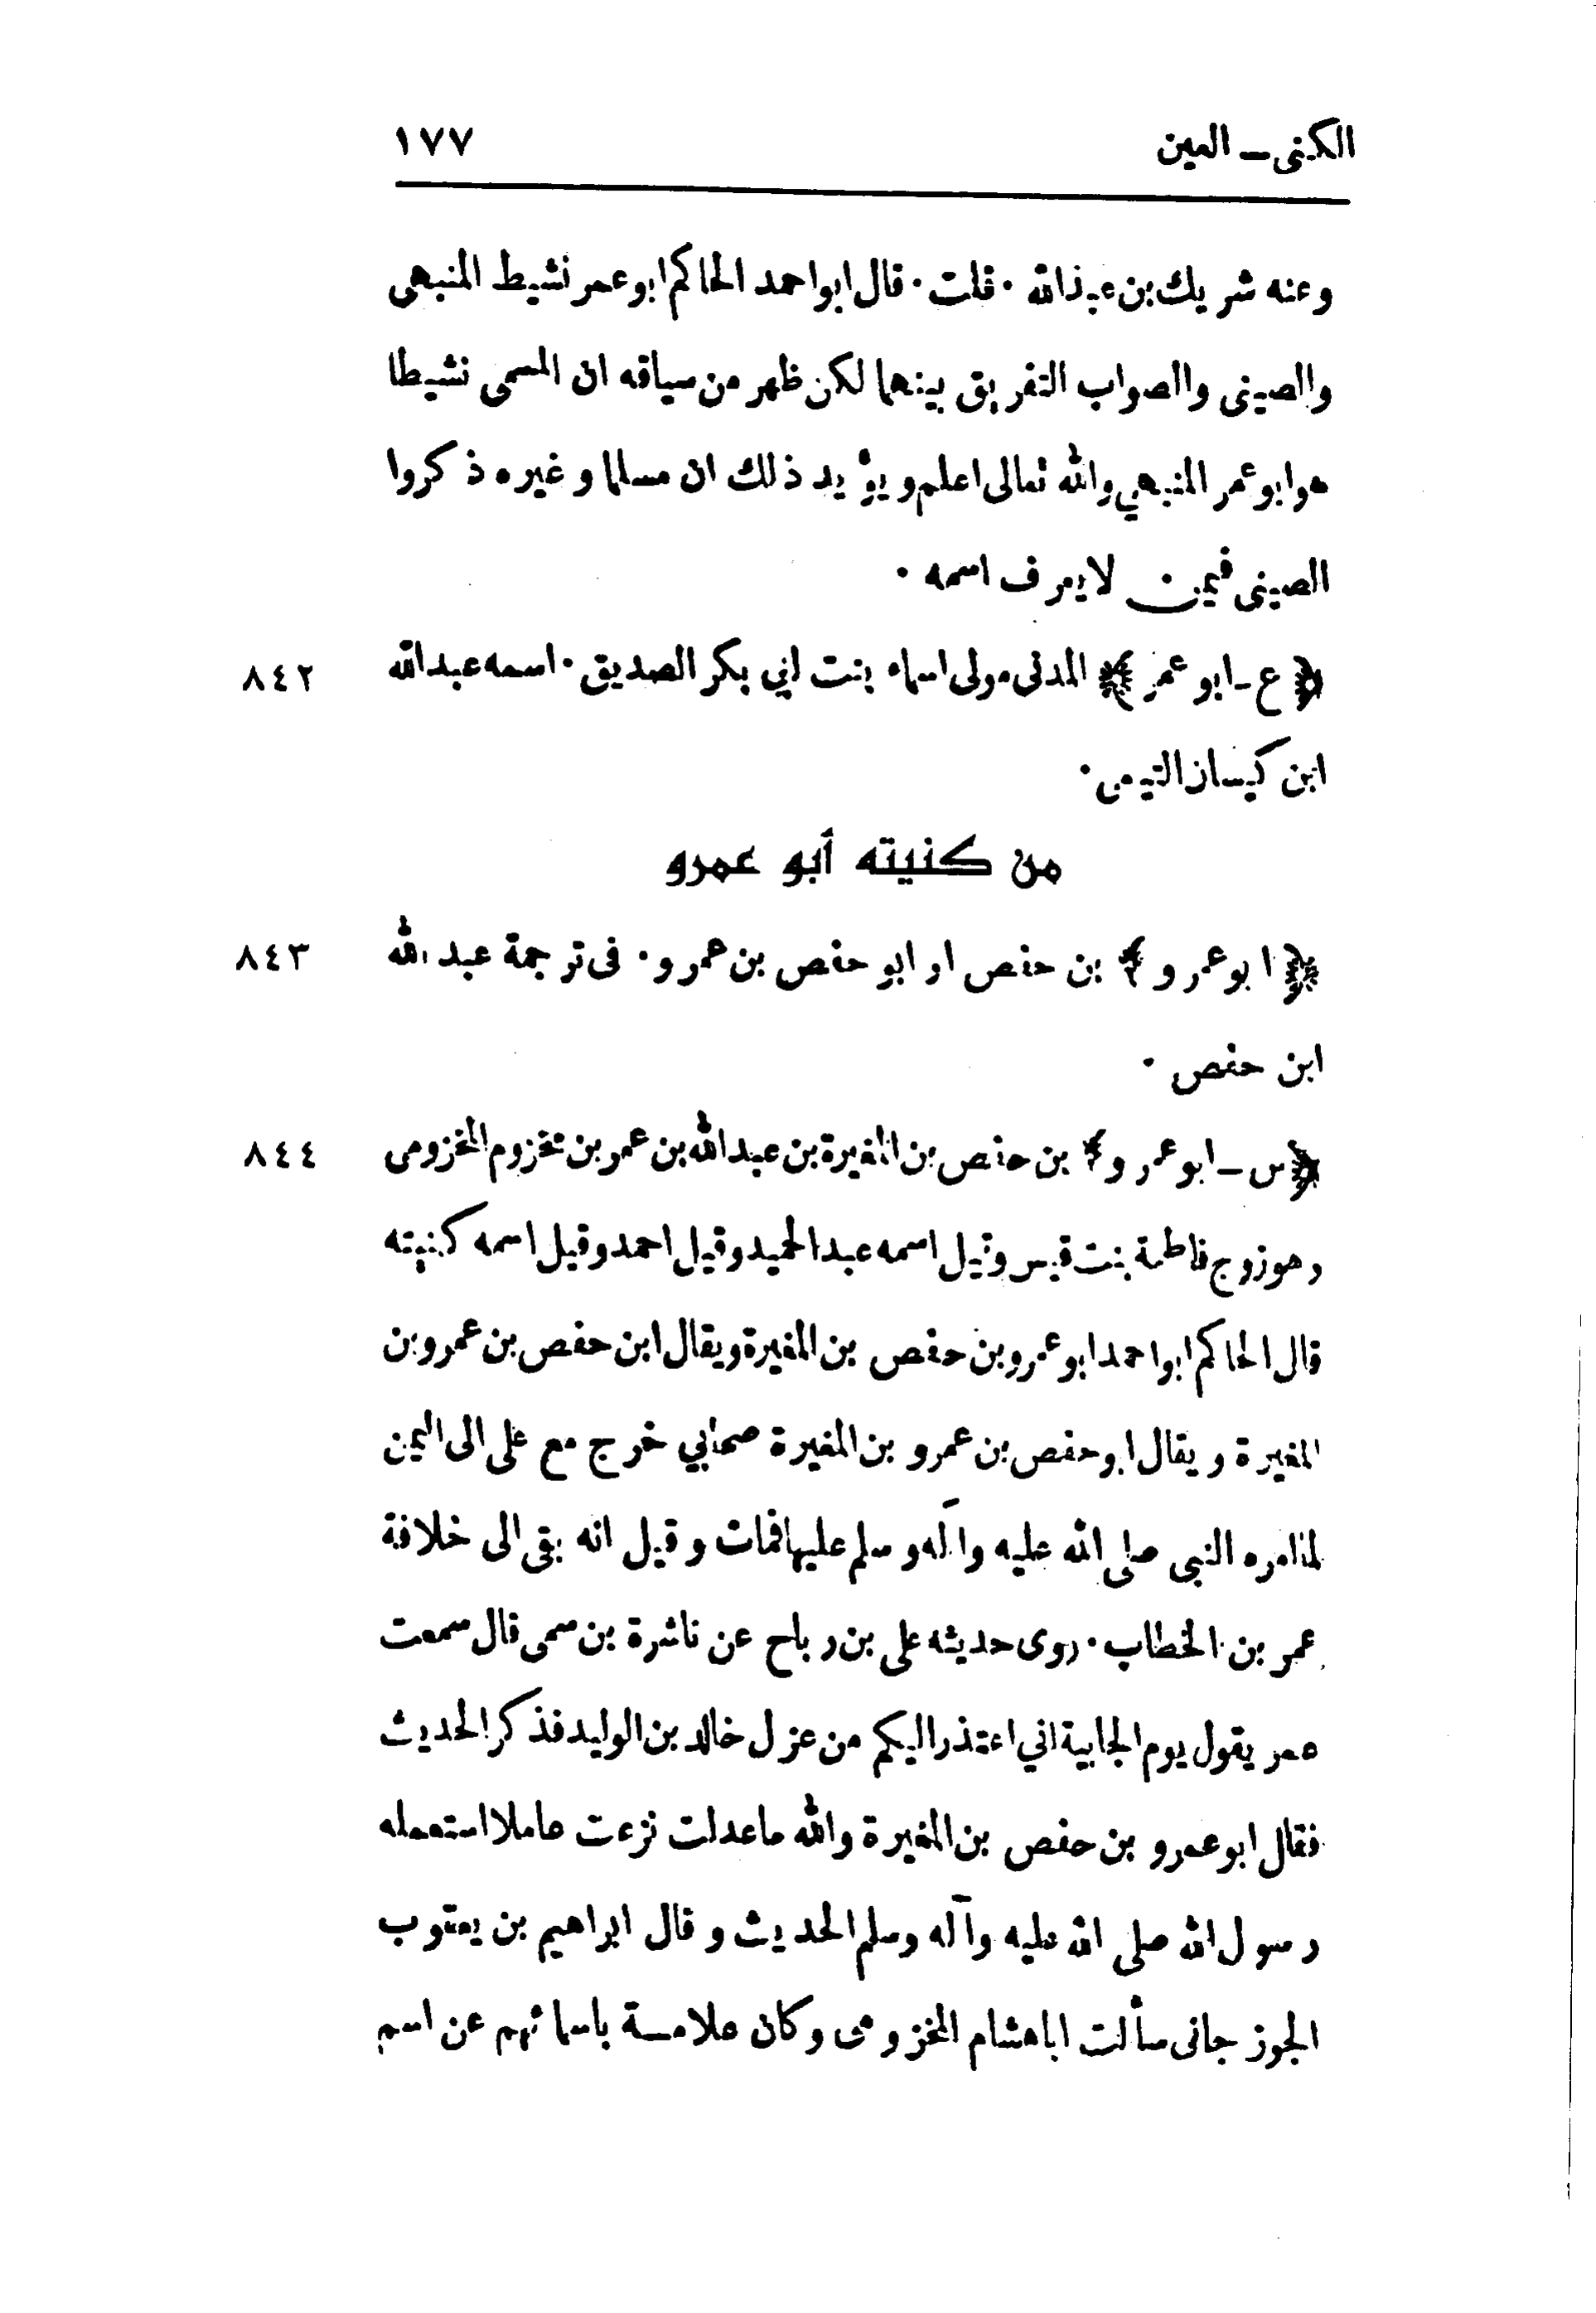 الكنى ـ العين ١٧٧
وعنه شريك بن عبد الله ٠ قلت ٠ قال ابو احمد الحاكم ابو عمر نشيط المنبهى
والصينى والصواب التفريق بينهما لكن ظهر من سياقه ان المسمى نشيطا
هو ابو عمر المنبهي والله تعالى اعلم ويؤيد ذلك ان مسلما وغيره ذكروا
الصينى فيمن لا يعرف اسمه ٠
﴿ ع ـ ابو عمر ﴾ المدنى مولى اسماء بنت ابي بكر الصديق ٠ اسمه عبد الله ٨٤٢
ابن كيسان التيمى ٠
من كنيته أبو عمرو
﴿ ابو عمرو ﴾ بن حفص او ابو حفص بن عمرو ٠ فى ترجمة عبد الله ٨٤٣
ابن حفص ٠
﴿ س ـ ابو عمرو ﴾ بن حفص بن المغيرة بن عبد الله بن عمر بن مخزوم المخزومى ٨٤٤
وهو زوج فاطمة بنت قيس وقيل اسمه عبد الحميد وقيل احمد وقيل اسمه كنيته
قال الحاكم ابو احمد ابو عمرو بن حفص بن المغيرة ويقال ابن حفص بن عمرو بن
المغيرة ويقال ابو حفص بن عمرو بن المغيرة صحابي خرج مع على الى اليمن
لما امره النبى صلى الله عليه وآله وسلم عليها فمات وقيل انه بقى الى خلافة
عمر بن الخطاب ٠ روى حديثه على بن رباح عن ناشرة بن سمى قال سمعت
عمر يقول يوم الجابية اني اعتذر اليكم من عزل خالد بن الوليد فذكر الحديث
فقال ابو عمرو بن حفص بن المغيرة والله ما عدلت نزعت عاملا استعمله
رسول الله صلى الله عليه وآله وسلم الحديث وقال ابراهيم بن يعقوب
الجوزجانى سألت ابا هشام المخزومى وكان علامـة باسمائهم عن اسم